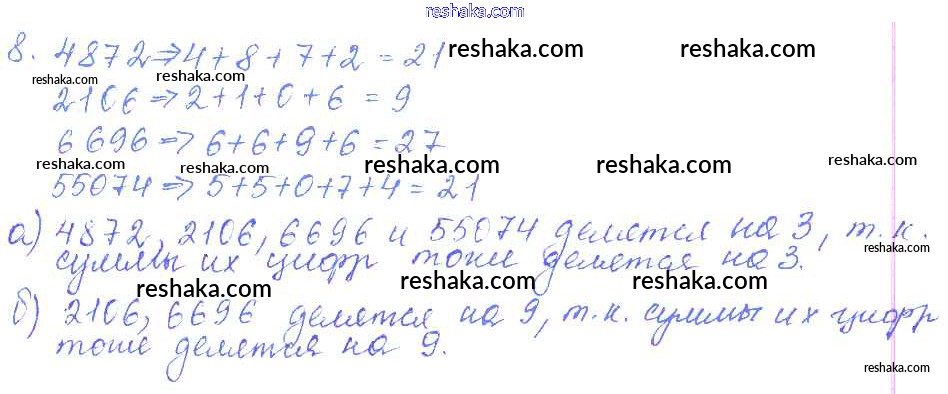 reshaka.com
8. 4872 ⇒ 4+8+7+2 = 21
reshaka.com reshaka.com reshaka.com reshaka.com
2106 ⇒ 2+1+0+6 = 9
6696 ⇒ 6+6+9+6 = 27
reshaka.com reshaka.com reshaka.com reshaka.com
55074 ⇒ 5+5+0+7+4 = 21
а) 4872, 2106, 6696 и 55074 делятся на 3, т.к.
reshaka.com
суммы их цифр тоже делятся на 3.
reshaka.com reshaka.com reshaka.com
б) 2106, 6696 делятся на 9, т.к. суммы их цифр
тоже делятся на 9.
reshaka.com